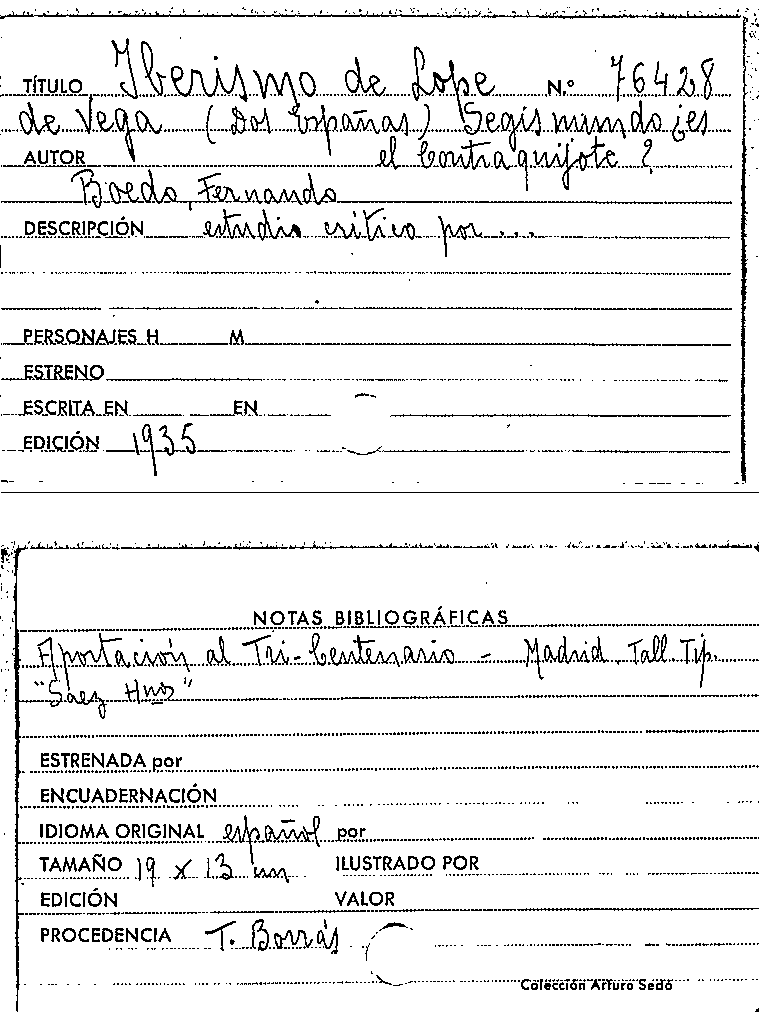 TÍTULO Iberismo de Lope N.º 76428
de Vega (Dos Españas) Segismundo ¿es
AUTOR el Contraquijote?
Boedo, Fernando
DESCRIPCIÓN estudio crítico por...
PERSONAJES H M
ESTRENO
ESCRITA EN EN
EDICIÓN 1935
NOTAS BIBLIOGRÁFICAS
Aportación al Tri-Centenario - Madrid. Tall. Tip.
"Saez Hnos"
ESTRENADA por
ENCUADERNACIÓN
IDIOMA ORIGINAL español por
TAMAÑO 19 x 13 cm ILUSTRADO POR
EDICIÓN VALOR
PROCEDENCIA T. Borrás
Colección Arturo Sedó